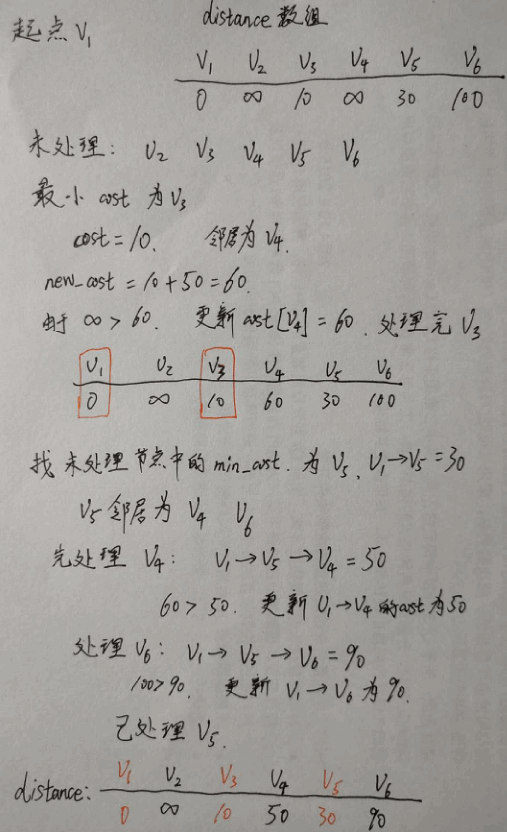 distance 数组
起点 V1
V1 V2 V3 V4 V5 V6
0 ∞ 10 ∞ 30 100
未处理: V2 V3 V4 V5 V6
最小 cost 为 V3
cost = 10. 邻居为 V4.
new_cost = 10 + 50 = 60.
由于 ∞ > 60. 更新 cost[V4] = 60. 处理完 V3
V1 V2 V3 V4 V5 V6
0 ∞ 10 60 30 100
找未处理节点中的 min_cost. 为 V5. V1→V5 = 30
V5 邻居为 V4 V6
先处理 V4: V1→V5→V4 = 50
60 > 50. 更新 V1→V4 的 cost 为 50
处理 V6: V1→V5→V6 = 90
100 > 90. 更新 V1→V6 为 90.
已处理 V5.
distance: V1 V2 V3 V4 V5 V6
0 ∞ 10 50 30 90